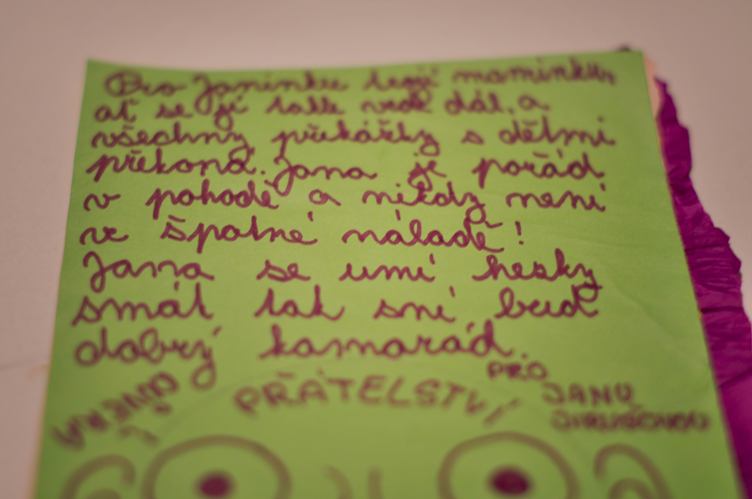 Pro Janinku její maminku,
ať se jí takle vede dál, a
všechny překážky s dětmi
překoná. Jana je pořád
v pohodě a nikdy není
ve špatné náladě!
Jana se umí hezky
smát tak smí buď
dobrý kamarád.
PŘÁTELSTVÍ
PRO
JANU